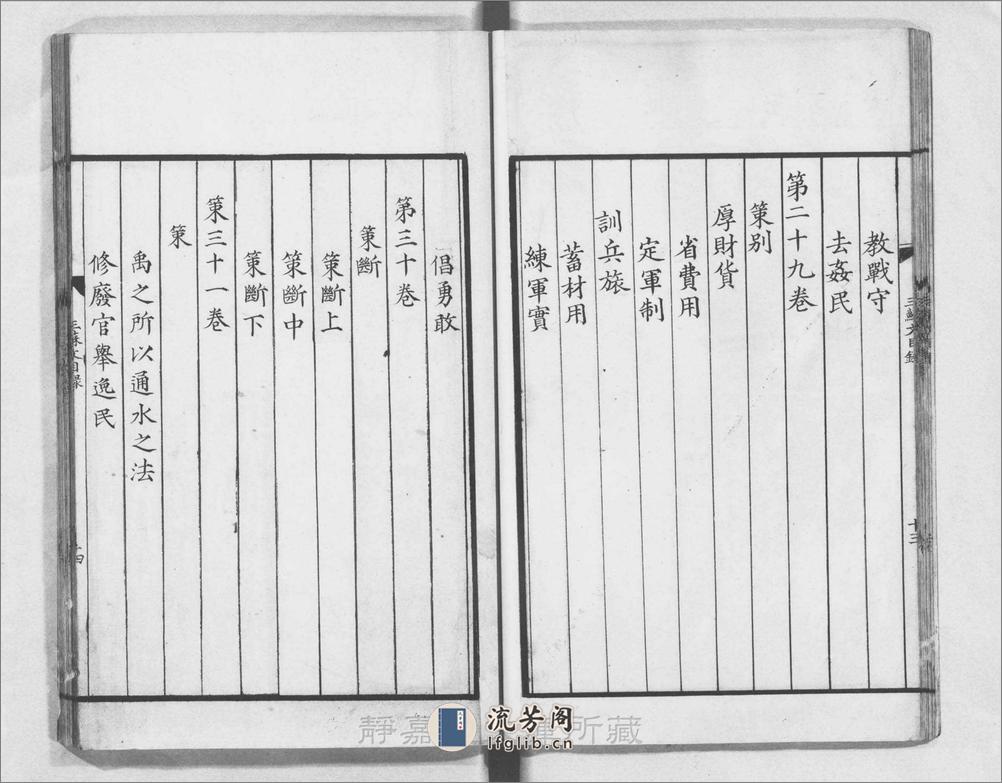 教戰守
去姦民
第二十九卷
策别
厚財貨
省費用
定軍制
訓兵旅
蓄材用
練軍實
倡勇敢
第三十卷
策斷
策斷上
策斷中
策斷下
第三十一卷
策
禹之所以通水之法
修廢官舉逸民
三蘇文目録
十三
三蘇文目録
十四
靜嘉
所藏
流芳阁
lfglib.cn